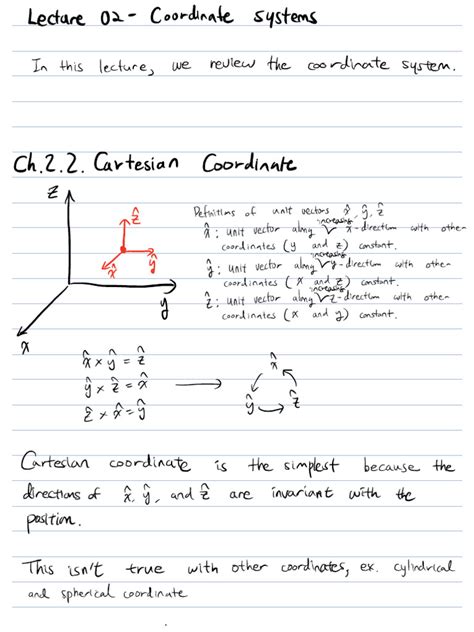 Lecture 02 - Coordinate systems
In this lecture, we review the coordinate system.
Ch.2.2. Cartesian Coordinate
z
ẑ
x̂
ŷ
y
x
Definitions of unit vectors x̂, ŷ, ẑ
x̂ : unit vector along increasing x-direction with other
coordinates (y and z) constant.
ŷ : unit vector along increasing y-direction with other
coordinates (x and z) constant.
ẑ : unit vector along increasing z-direction with other
coordinates (x and y) constant.
x̂ × ŷ = ẑ
ŷ × ẑ = x̂
ẑ × x̂ = ŷ
x̂
ŷ
ẑ
Cartesian coordinate is the simplest because the
directions of x̂, ŷ, and ẑ are invariant with the
position.
This isn't true with other coordinates, ex. cylindrical
and spherical coordinate